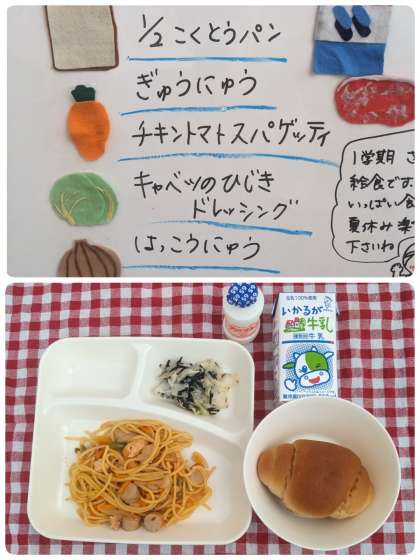 1/2 こくとうパン
ぎゅうにゅう
チキントマトスパゲッティ
キャベツのひじき
ドレッシング
はっこうにゅう
1学期 さ
給食です
いっぱい食
夏休み楽
下さいね
生乳100%使用
いかるが
牛乳
種類別 牛乳